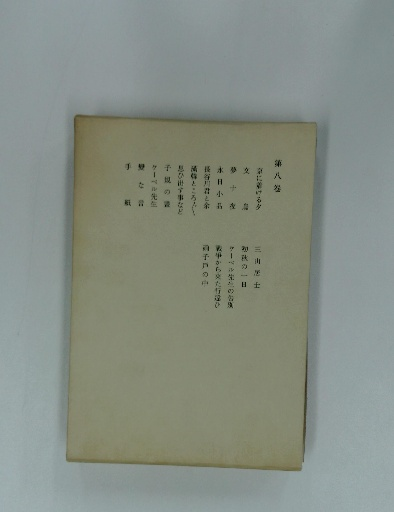 第八巻
京に着ける夕
文鳥
夢十夜
永日小品
長谷川君と余
満韓ところどころ
思ひ出す事など
子規の畫
ケーベル先生
變な音
手紙
三山居士
初秋の一日
ケーベル先生の告別
戰爭から來た行違ひ
硝子戸の中